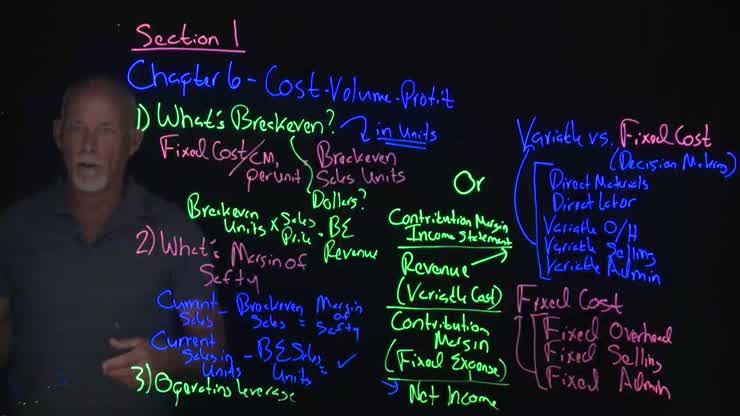 Section 1
Chapter 6 - Cost-Volume-Profit
1) What's Breakeven?
in units
Fixed Cost/CM, per unit = Breakeven Sales Units
Dollars?
Breakeven Units x Sales Price = BE Revenue
2) What's Margin of Safty
Current Sales - Breakeven Sales = Margin of Safty
Current Sales in Units - BE Sales Units = ✓
3) Operating leverage
Or
Contribution Margin
Income Statement
Revenue
(Variable Cost)
Contribution
Margin
(Fixed Expense)
Net Income
Variable vs. Fixed Cost
(Decision Making)
Direct Materials
Direct Labor
Variable O/H
Variable Selling
Variable Admin
Fixed Cost
Fixed Overhead
Fixed Selling
Fixed Admin